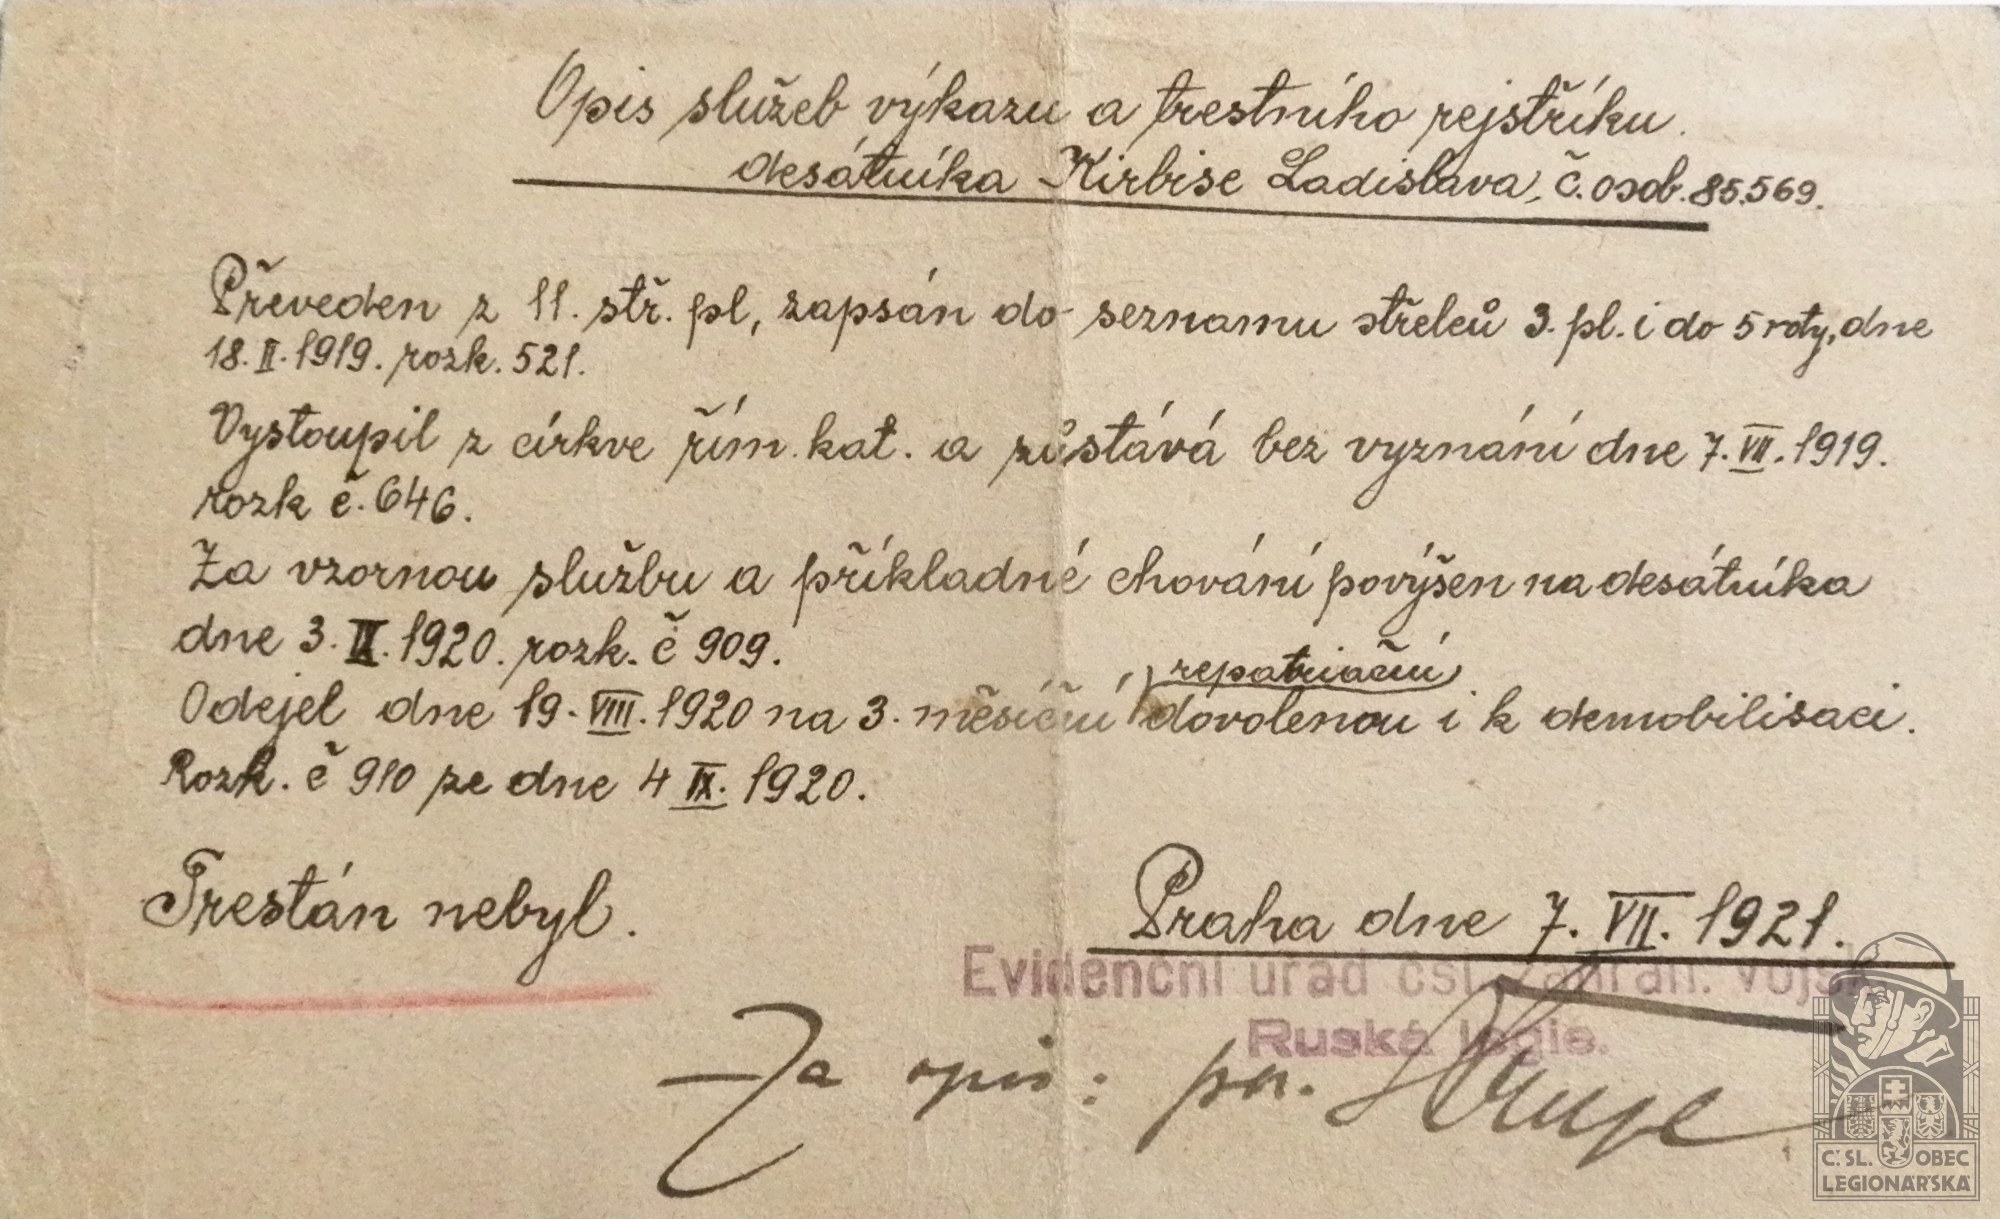 Opis služeb výkazu a trestního rejstříku.
desátníka Kirbise Ladislava, č. osob. 85.569.
Převeden z 11. stř. pl, zapsán do seznamu střelců 3. pl. i do 5 roty, dne
18. II. 1919. rozk. 521.
Vystoupil z církve řím. kat. a zůstává bez vyznání dne 7. VII. 1919.
rozk č. 646.
Za vzornou službu a příkladné chování povýšen na desátníka
dne 3. IX. 1920. rozk. č 909.
repatriační
Odejel dne 19. VIII. 1920 na 3. měsíční dovolenou i k demobilisaci.
Rozk. č 910 ze dne 4 IX. 1920.
Trestán nebyl.
Praha dne 7. VII. 1921.
Evidenční úřad čsl. zahran. vojsk
Ruská legie.
Za opis: pr.
Č. SL. OBEC
LEGIONÁŘSKÁ